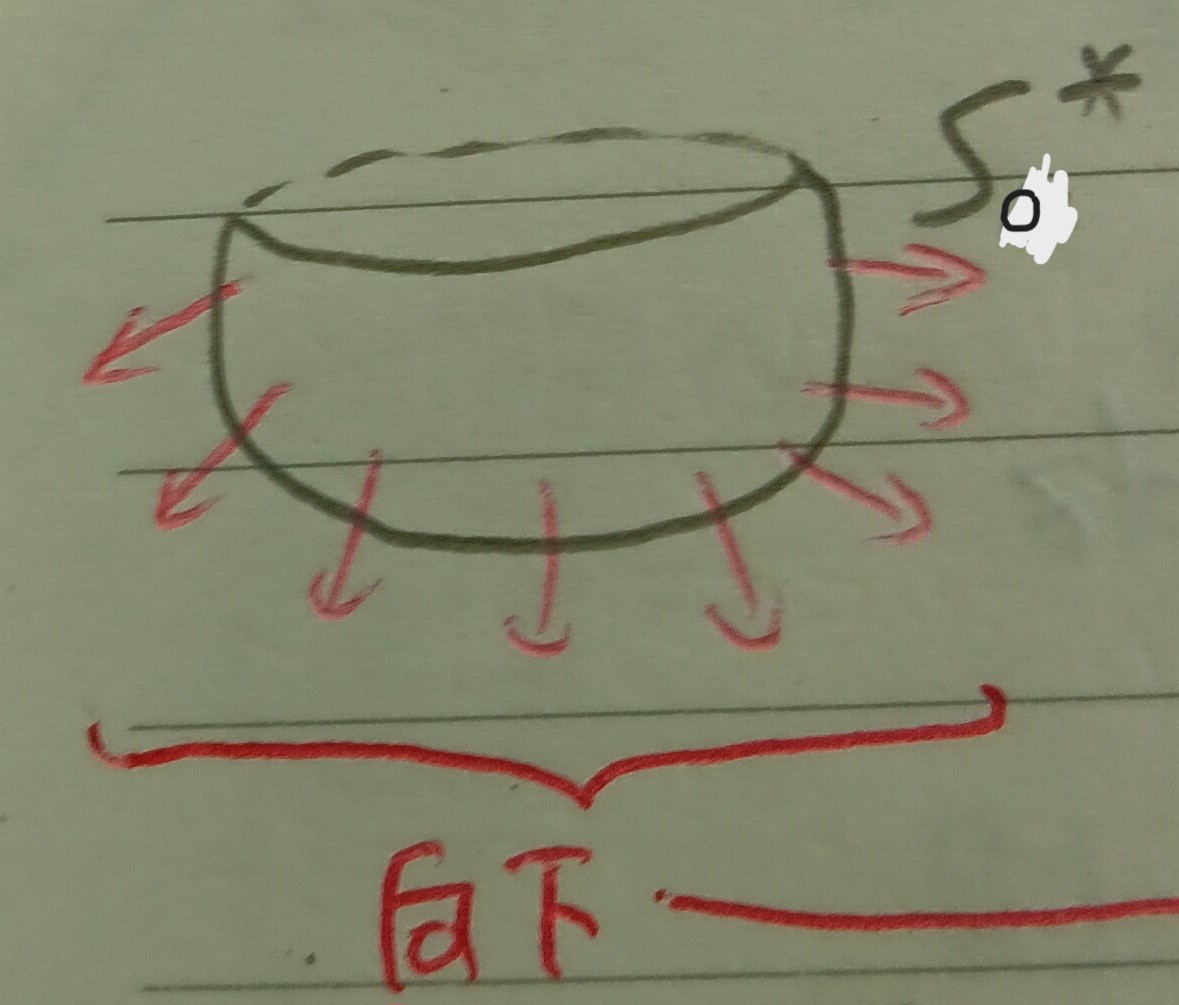 S₀*
向下